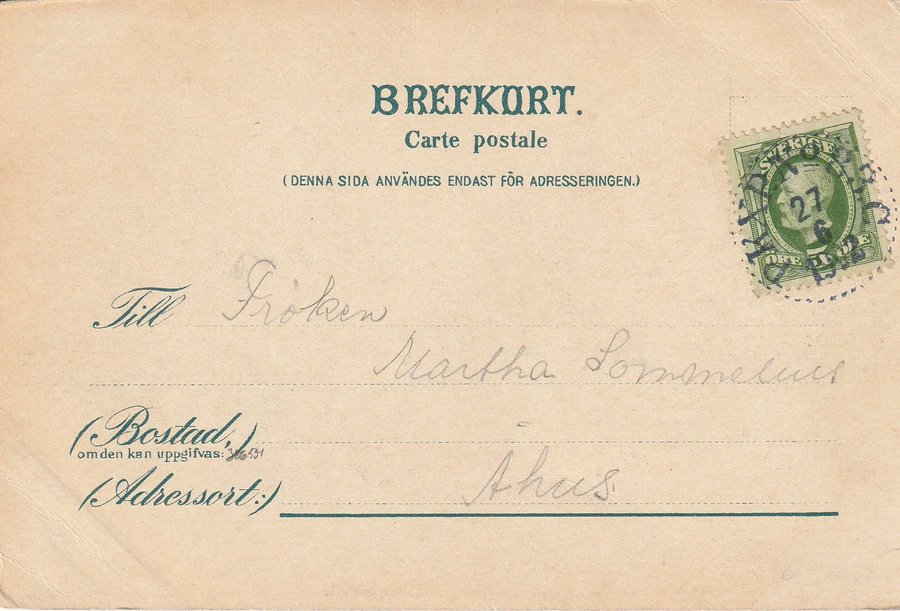 BREFKORT.
Carte postale
(DENNA SIDA ANVÄNDES ENDAST FÖR ADRESSERINGEN.)
SVERIGE
27
6
1902
5 ÖRE
Till Fröken
Martha Sommelius
(Bostad,)
om den kan uppgifvas: 386531
(Adressort:) Åhus.